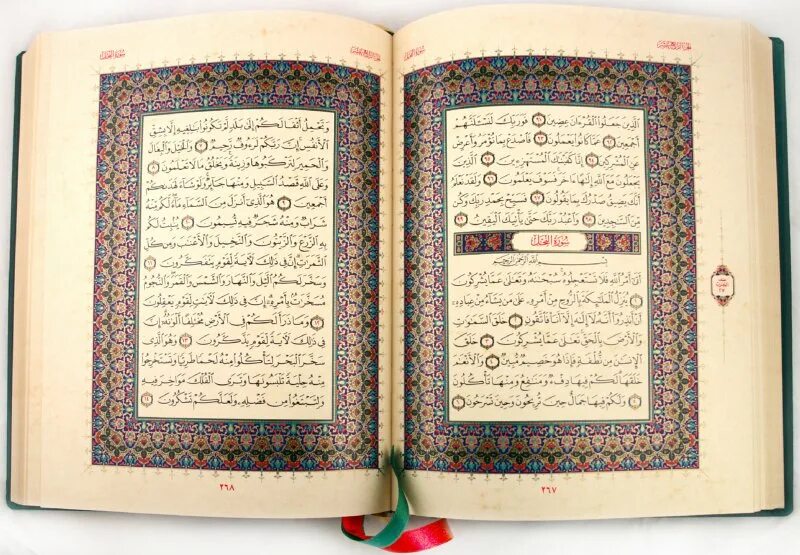 الجُزءُ الرَّابِعُ عَشَر
سُورَةُ النَّحْلِ
ٱلَّذِينَ جَعَلُوا۟ ٱلْقُرْءَانَ عِضِينَ ٩١ فَوَرَبِّكَ لَنَسْـَٔلَنَّهُمْ
أَجْمَعِينَ ٩٢ عَمَّا كَانُوا۟ يَعْمَلُونَ ٩٣ فَٱصْدَعْ بِمَا تُؤْمَرُ وَأَعْرِضْ
عَنِ ٱلْمُشْرِكِينَ ٩٤ إِنَّا كَفَيْنَٰكَ ٱلْمُسْتَهْزِءِينَ ٩٥ ٱلَّذِينَ
يَجْعَلُونَ مَعَ ٱللَّهِ إِلَٰهًا ءَاخَرَ فَسَوْفَ يَعْلَمُونَ ٩٦ وَلَقَدْ نَعْلَمُ
أَنَّكَ يَضِيقُ صَدْرُكَ بِمَا يَقُولُونَ ٩٧ فَسَبِّحْ بِحَمْدِ رَبِّكَ وَكُن
مِّنَ ٱلسَّٰجِدِينَ ٩٨ وَٱعْبُدْ رَبَّكَ حَتَّىٰ يَأْتِيَكَ ٱلْيَقِينُ ٩٩
سُورَةُ النَّحْلِ
بِسْمِ ٱللَّهِ ٱلرَّحْمَٰنِ ٱلرَّحِيمِ
أَتَىٰٓ أَمْرُ ٱللَّهِ فَلَا تَسْتَعْجِلُوهُ سُبْحَٰنَهُۥ وَتَعَٰلَىٰ عَمَّا يُشْرِكُونَ
١ يُنَزِّلُ ٱلْمَلَٰٓئِكَةَ بِٱلرُّوحِ مِنْ أَمْرِهِۦ عَلَىٰ مَن يَشَآءُ مِنْ عِبَادِهِۦٓ
أَنْ أَنذِرُوٓا۟ أَنَّهُۥ لَآ إِلَٰهَ إِلَّآ أَنَا۠ فَٱتَّقُونِ ٢ خَلَقَ ٱلسَّمَٰوَٰتِ
وَٱلْأَرْضَ بِٱلْحَقِّ تَعَٰلَىٰ عَمَّا يُشْرِكُونَ ٣ خَلَقَ
ٱلْإِنسَٰنَ مِن نُّطْفَةٍ فَإِذَا هُوَ خَصِيمٌ مُّبِينٌ ٤ وَٱلْأَنْعَٰمَ
خَلَقَهَا لَكُمْ فِيهَا دِفْءٌ وَمَنَٰفِعُ وَمِنْهَا تَأْكُلُونَ
٥ وَلَكُمْ فِيهَا جَمَالٌ حِينَ تُرِيحُونَ وَحِينَ تَسْرَحُونَ ٦
٢٦٧
الجُزءُ الرَّابِعُ عَشَر
سُورَةُ النَّحْلِ
وَتَحْمِلُ أَثْقَالَكُمْ إِلَىٰ بَلَدٍ لَّمْ تَكُونُوا۟ بَٰلِغِيهِ إِلَّا بِشِقِّ
ٱلْأَنفُسِ إِنَّ رَبَّكُمْ لَرَءُوفٌ رَّحِيمٌ ٧ وَٱلْخَيْلَ وَٱلْبِغَالَ
وَٱلْحَمِيرَ لِتَرْكَبُوهَا وَزِينَةً وَيَخْلُقُ مَا لَا تَعْلَمُونَ ٨
وَعَلَى ٱللَّهِ قَصْدُ ٱلسَّبِيلِ وَمِنْهَا جَآئِرٌ وَلَوْ شَآءَ لَهَدَىٰكُمْ
أَجْمَعِينَ ٩ هُوَ ٱلَّذِىٓ أَنزَلَ مِنَ ٱلسَّمَآءِ مَآءً لَّكُم مِّنْهُ
شَرَابٌ وَمِنْهُ شَجَرٌ فِيهِ تُسِيمُونَ ١٠ يُنۢبِتُ لَكُم
بِهِ ٱلزَّرْعَ وَٱلزَّيْتُونَ وَٱلنَّخِيلَ وَٱلْأَعْنَٰبَ وَمِن كُلِّ
ٱلثَّمَرَٰتِ إِنَّ فِى ذَٰلِكَ لَءَايَةً لِّقَوْمٍ يَتَفَكَّرُونَ ١١
وَسَخَّرَ لَكُمُ ٱلَّيْلَ وَٱلنَّهَارَ وَٱلشَّمْسَ وَٱلْقَمَرَ وَٱلنُّجُومُ
مُسَخَّرَٰتٌۢ بِأَمْرِهِۦٓ إِنَّ فِى ذَٰلِكَ لَءَايَٰتٍ لِّقَوْمٍ يَعْقِلُونَ
١٢ وَمَا ذَرَأَ لَكُمْ فِى ٱلْأَرْضِ مُخْتَلِفًا أَلْوَٰنُهُۥٓ إِنَّ
فِى ذَٰلِكَ لَءَايَةً لِّقَوْمٍ يَذَّكَّرُونَ ١٣ وَهُوَ ٱلَّذِى
سَخَّرَ ٱلْبَحْرَ لِتَأْكُلُوا۟ مِنْهُ لَحْمًا طَرِيًّا وَتَسْتَخْرِجُوا۟
مِنْهُ حِلْيَةً تَلْبَسُونَهَا وَتَرَى ٱلْفُلْكَ مَوَاخِرَ فِيهِ
وَلِتَبْتَغُوا۟ مِن فَضْلِهِۦ وَلَعَلَّكُمْ تَشْكُرُونَ ١٤
٢٦٨